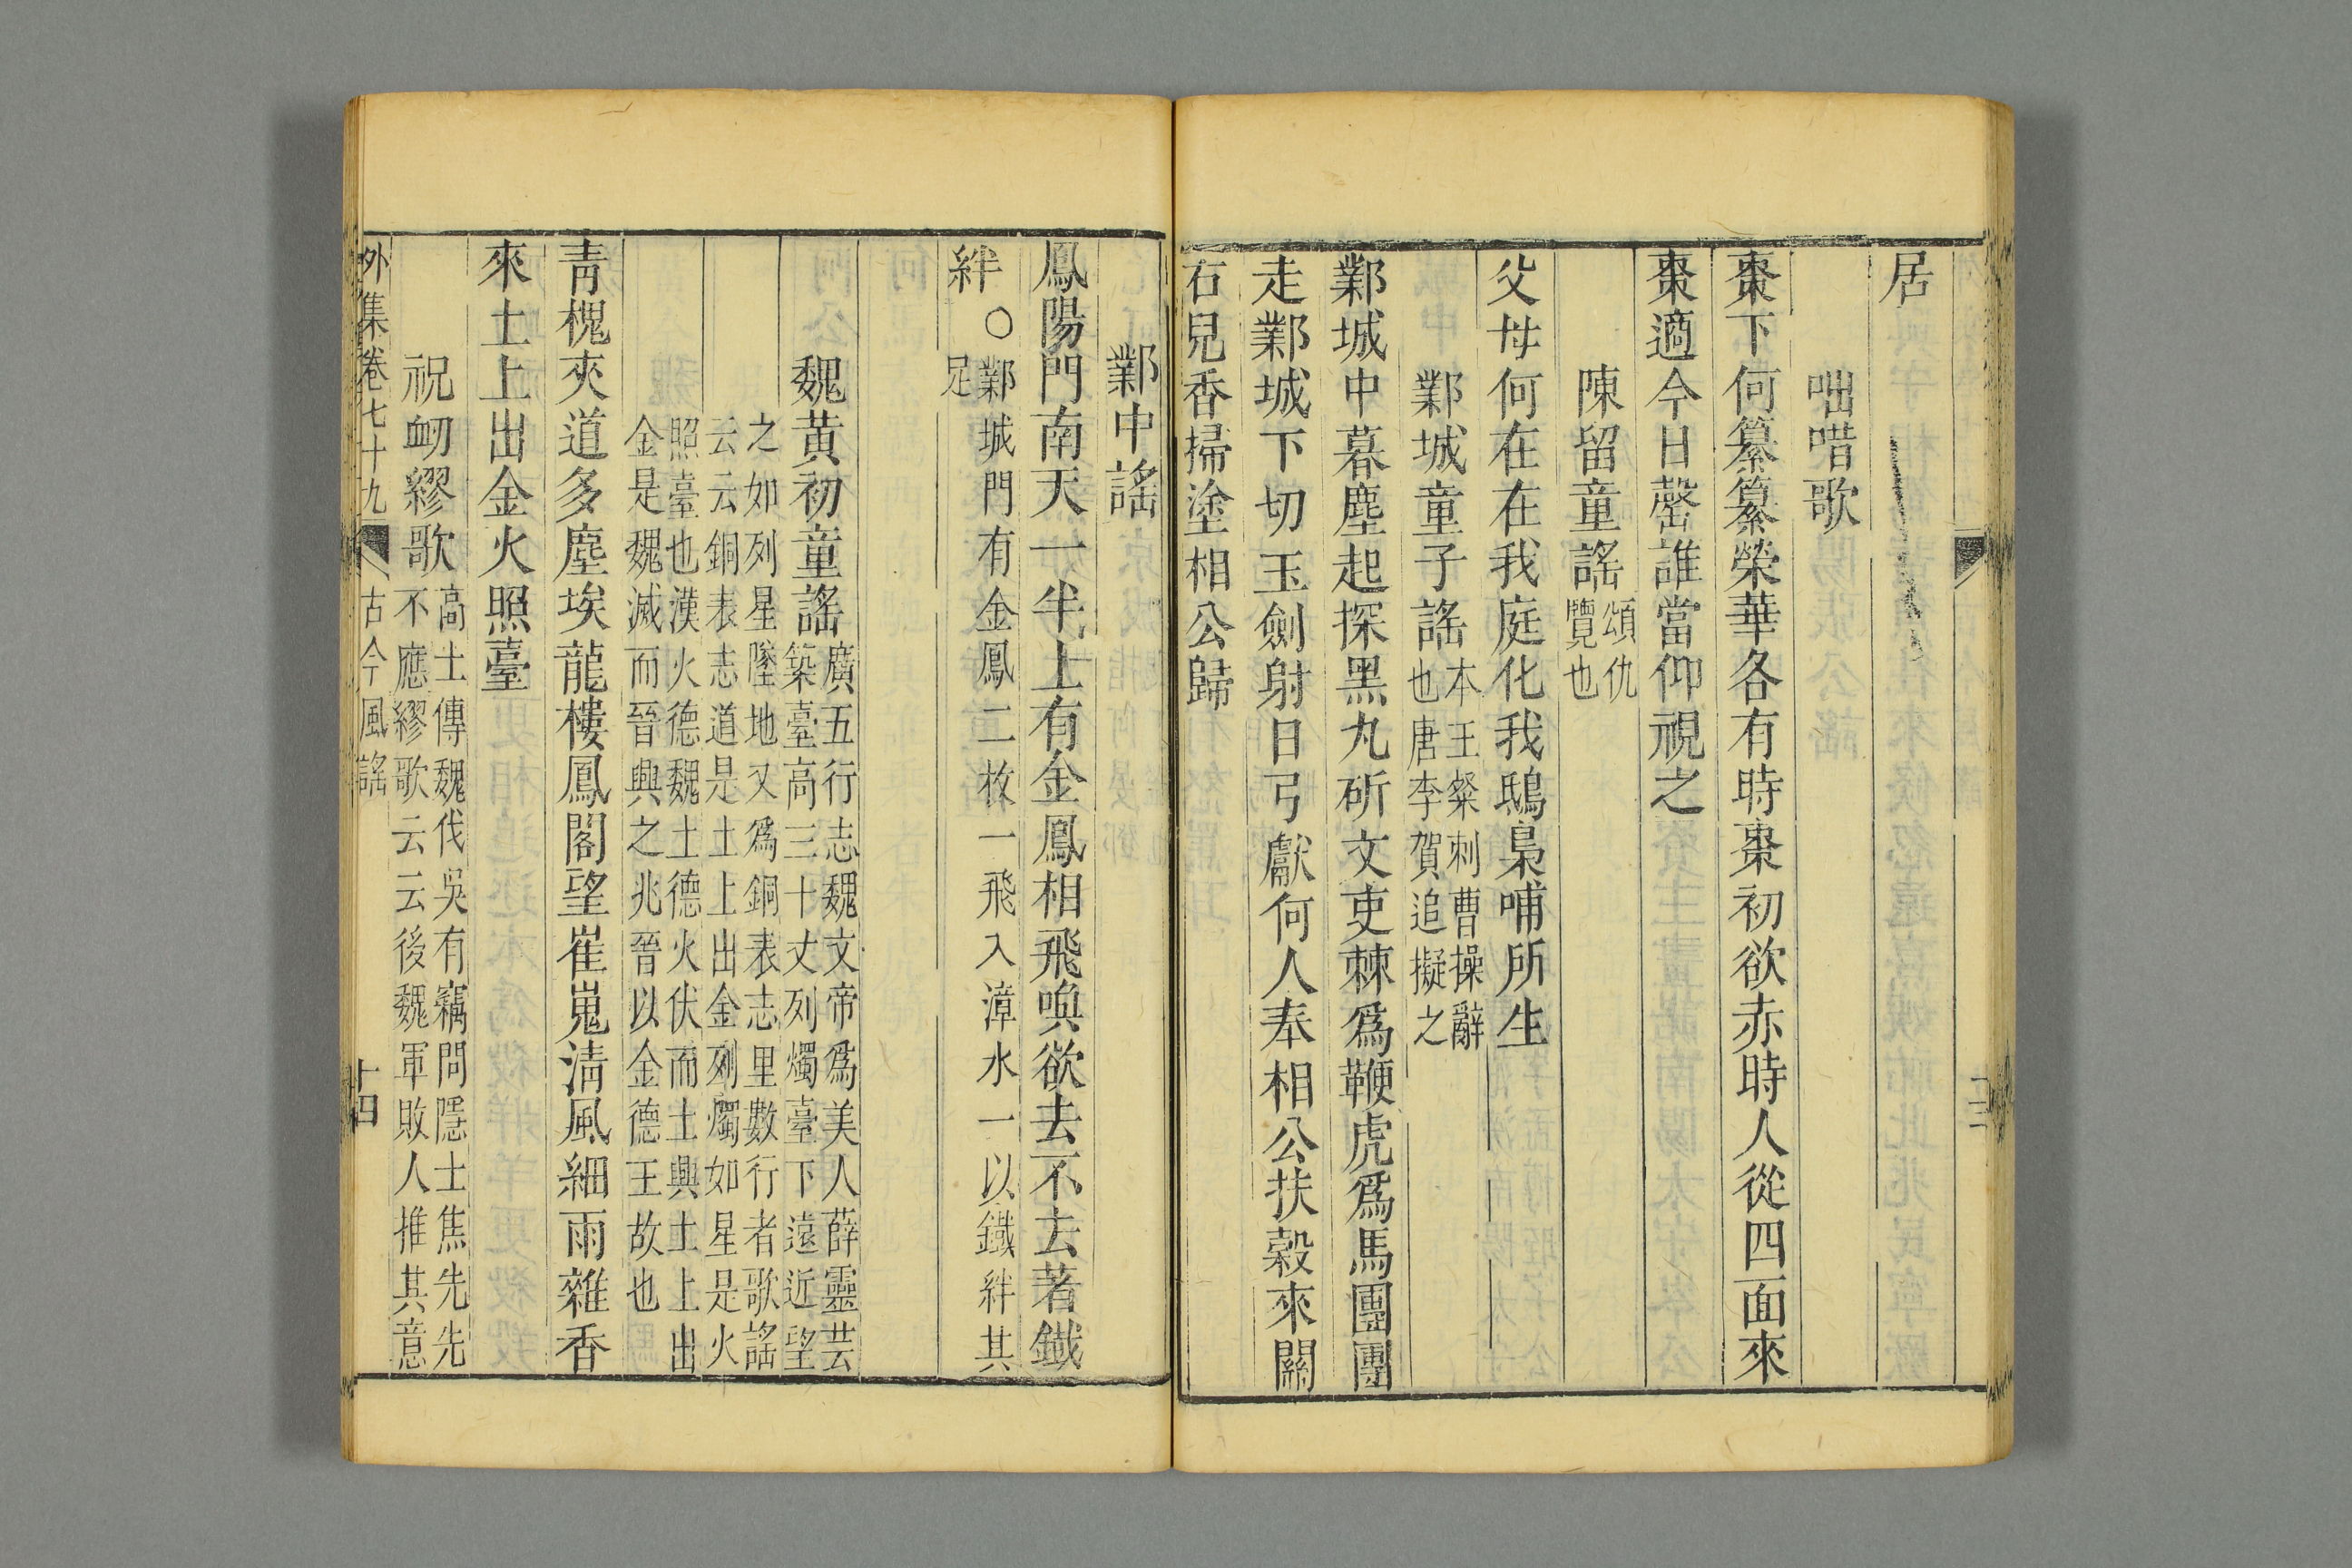 居
咄唶歌
棗下何纂纂榮華各有時棗初欲赤時人從四面來
棗適今日罄誰當仰視之
陳留童謠
頌仇
覽也
父母何在在我庭化我鴟梟哺所生
鄴城童子謠
本王粲刺曹操辭
也唐李賀追擬之
鄴城中暮塵起探黑丸斫文吏棘爲鞭虎爲馬團團
走鄴城下切玉劍射日弓獻何人奉相公扶轂來關
右兒香掃塗相公歸
鄴中謠
鳳陽門南天一半上有金鳳相飛喚欲去不去著鐵
絆○
鄴城門有金鳳二枚一飛入漳水一以鐵絆其
足
魏黃初童謠
廣五行志魏文帝爲美人薛靈芸
築臺高三十丈列燭臺下遠近望
之如列星墜地又爲銅表志里數行者歌謠
云云銅表志道是土上出金列燭如星是火
照臺也漢火德魏土德火伏而土興土上出
金是魏滅而晉興之兆晉以金德王故也
靑槐夾道多塵埃龍樓鳳閣望崔嵬淸風細雨雜香
來土上出金火照臺
祝衂繆歌
高士傳魏伐吳有竊問隱士焦先先
不應繆歌云云後魏軍敗人推其意
外集卷七十九 古今風謠 十四